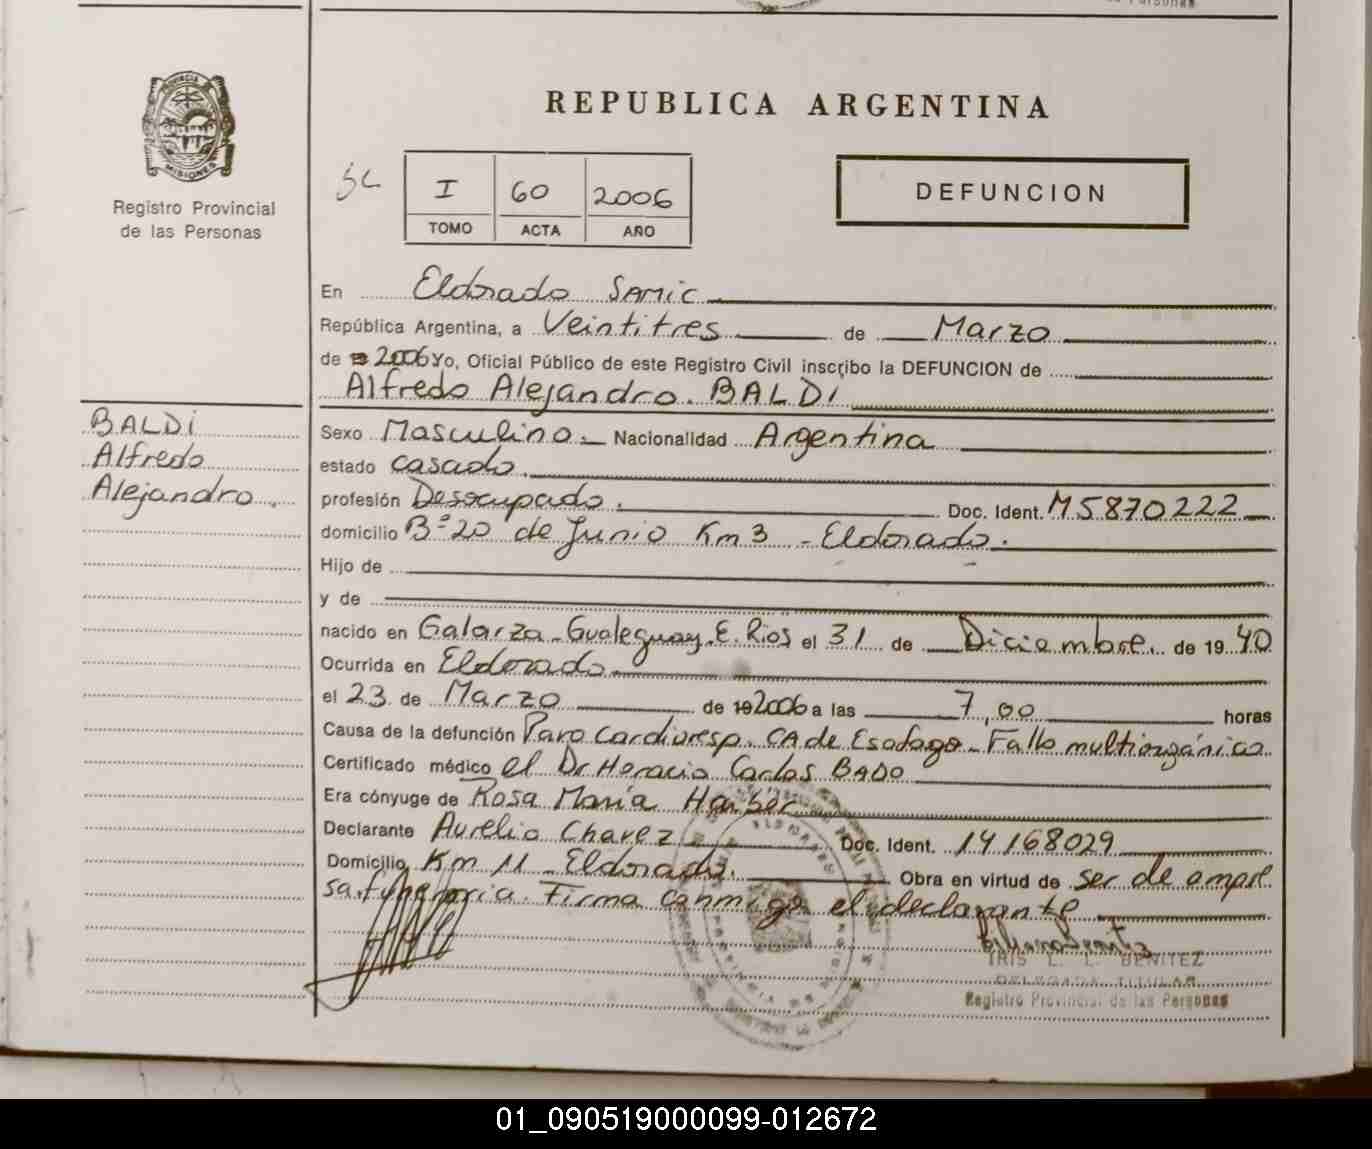 REPUBLICA ARGENTINA
PROVINCIA
MISIONES
Registro Provincial
de las Personas
I 60 2006
TOMO ACTA AÑO
DEFUNCION
En Eldorado SAMIC
República Argentina, a Veintitres de Marzo
de 2006 Yo, Oficial Público de este Registro Civil inscribo la DEFUNCION de
Alfredo Alejandro. BALDI
BALDI
Alfredo
Alejandro.
Sexo Masculino. Nacionalidad Argentina
estado casado.
profesión Desocupado. Doc. Ident. M5870222
domicilio Bº 20 de Junio Km 3 - Eldorado.
Hijo de
y de
nacido en Galarza - Gualeguay. E. Rios el 31 de Diciembre de 1940
Ocurrida en Eldorado
el 23 de Marzo de 192006 a las 7,00 horas
Causa de la defunción Paro Cardioresp. CA de Esofago - Fallo multiorgánico
Certificado médico el Dr Horacio Carlos BADO
Era cónyuge de Rosa María
Declarante Aurelio Chavez Doc. Ident. 14168029
Domicilio Km 11 - Eldorado. Obra en virtud de ser de empre
sa funeraria. Firma conmigo el declarante
IRIS L. L. BENITEZ
DELEGADA TITULAR
Registro Provincial de las Personas
01_090519000099-012672